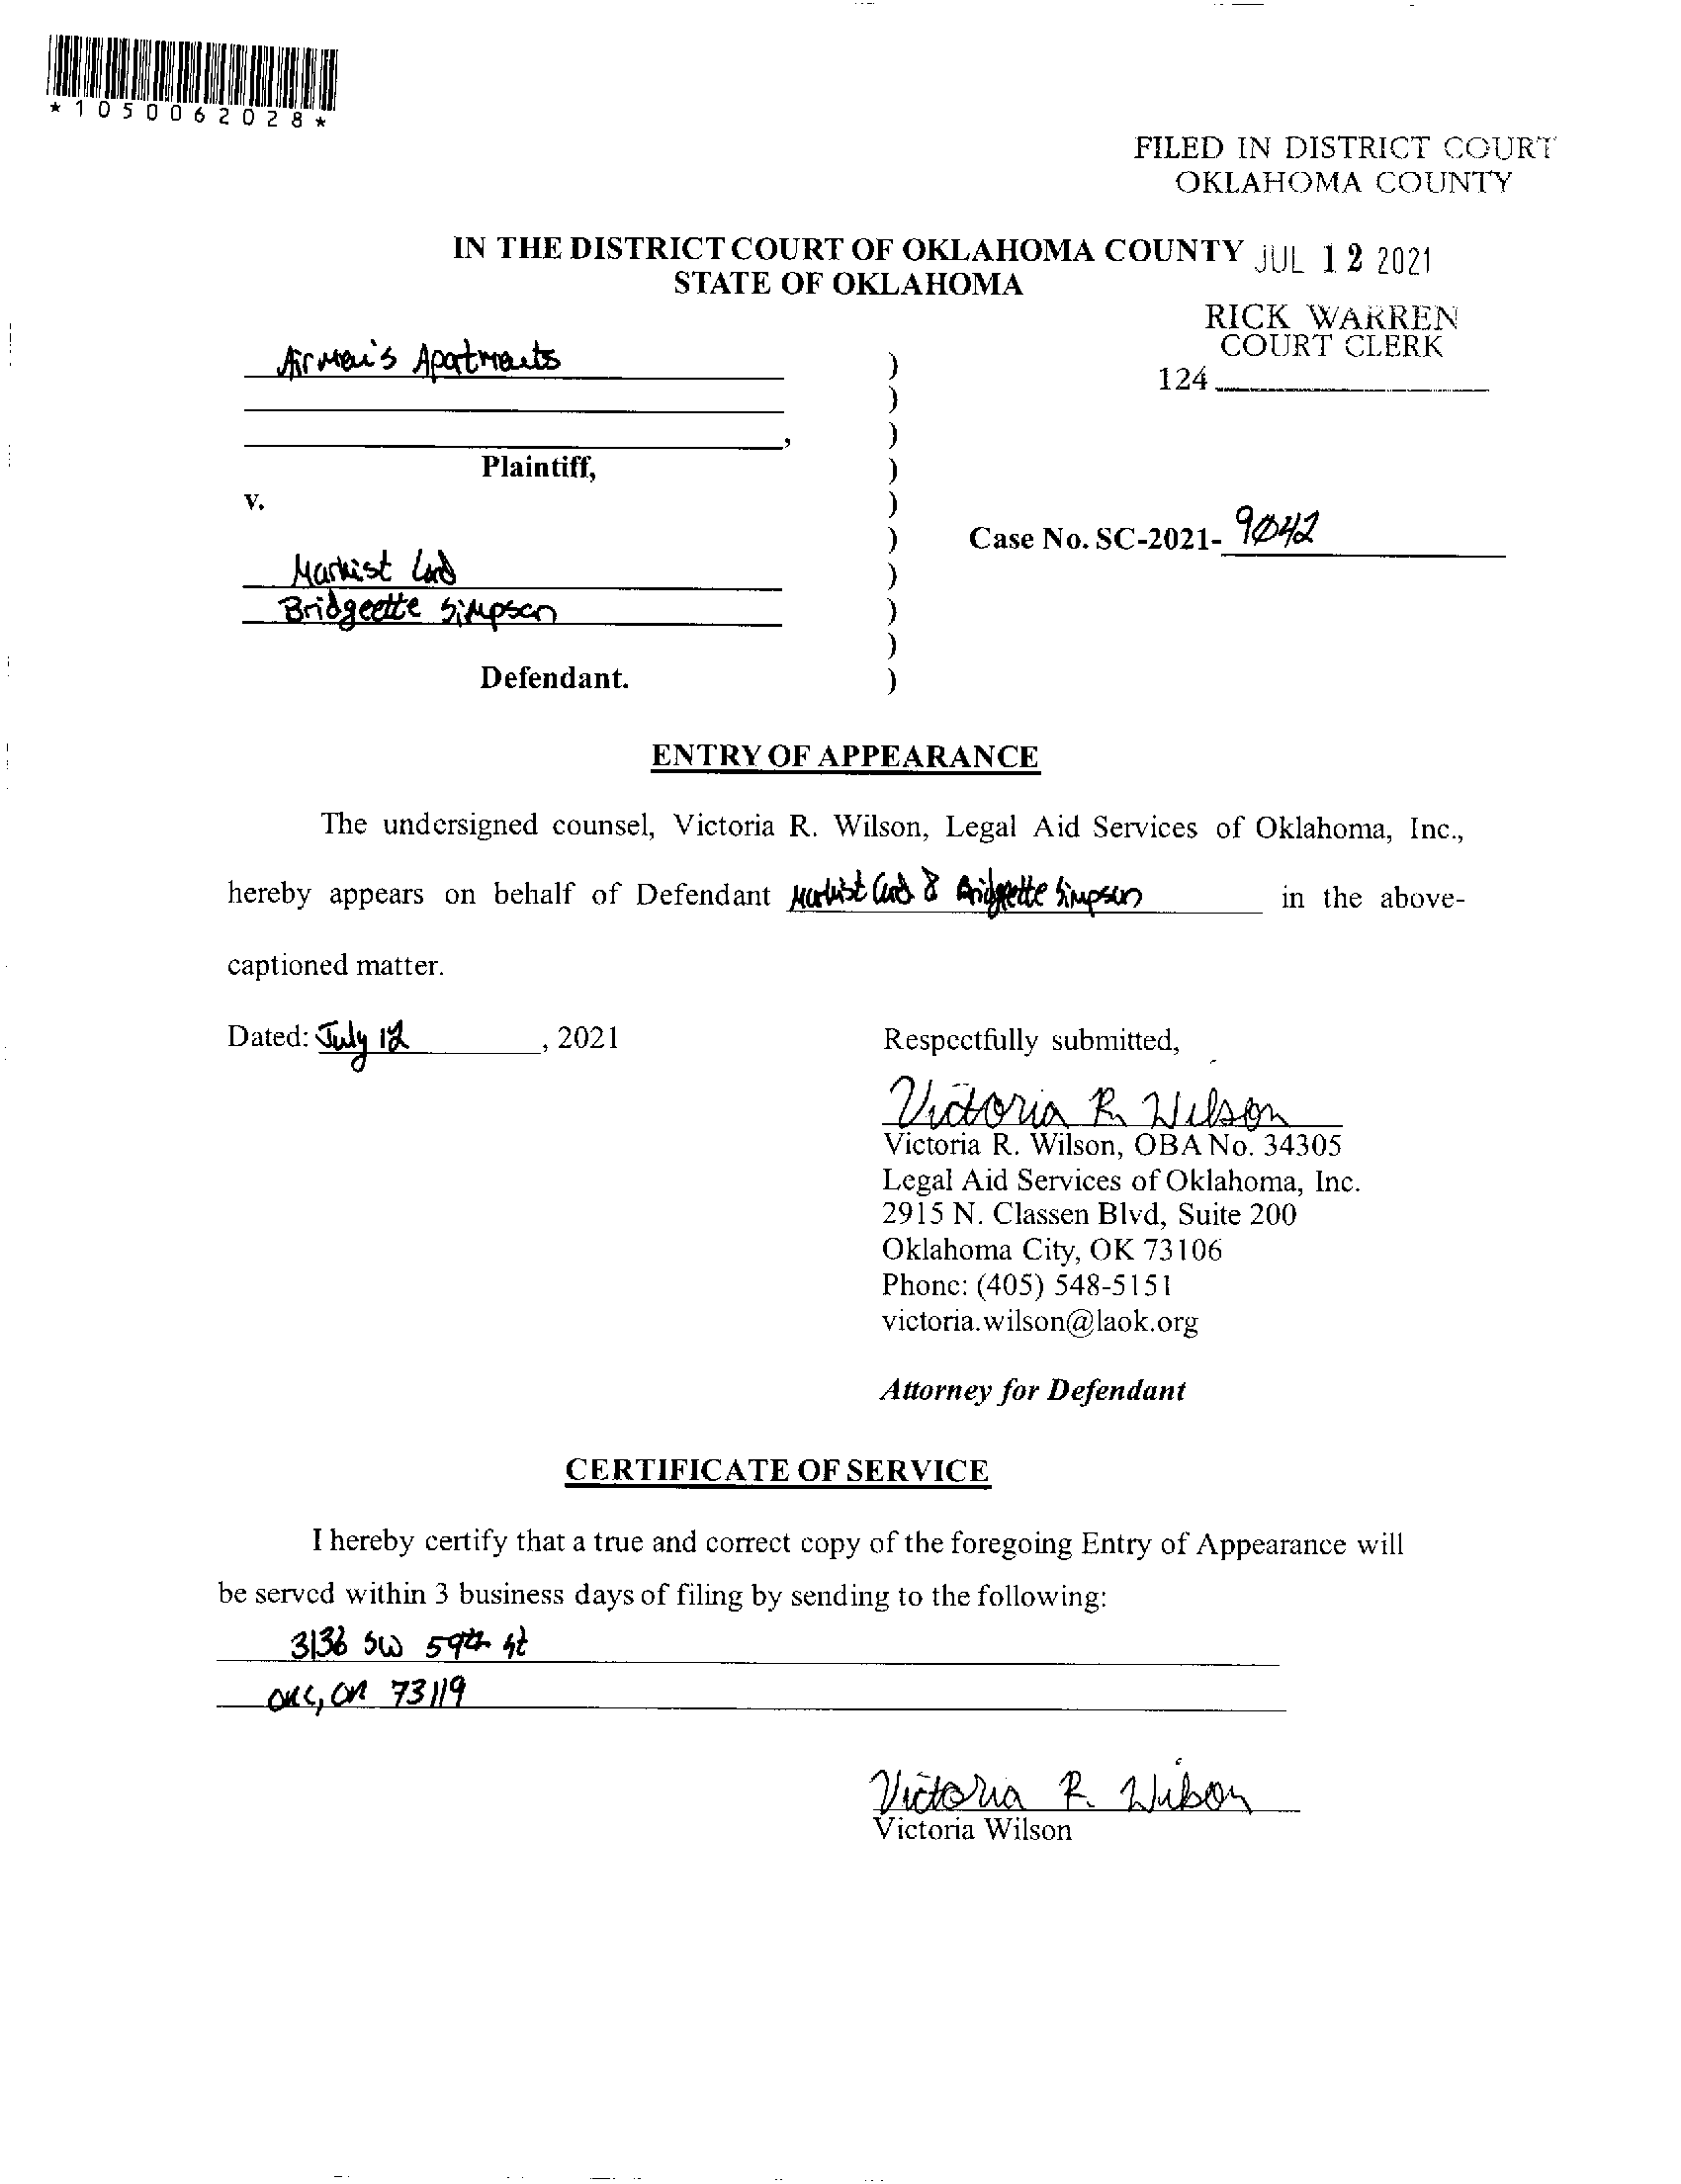 *1050062028*
FILED IN DISTRICT COURT
OKLAHOMA COUNTY
IN THE DISTRICT COURT OF OKLAHOMA COUNTY JUL 12 2021
STATE OF OKLAHOMA
RICK WARREN
COURT CLERK
124
Apatments
)
)
)
Plaintiff,
)
v.
)
) Case No. SC-2021- 9042
Markist
)
Bridgeette Simpson
)
)
Defendant.
)
ENTRY OF APPEARANCE
The undersigned counsel, Victoria R. Wilson, Legal Aid Services of Oklahoma, Inc.,
hereby appears on behalf of Defendant Markist & Bridgeette Simpson in the above-
captioned matter.
Dated: July 12, 2021
Respectfully submitted,
Victoria R. Wilson
Victoria R. Wilson, OBA No. 34305
Legal Aid Services of Oklahoma, Inc.
2915 N. Classen Blvd, Suite 200
Oklahoma City, OK 73106
Phone: (405) 548-5151
victoria.wilson@laok.org
Attorney for Defendant
CERTIFICATE OF SERVICE
I hereby certify that a true and correct copy of the foregoing Entry of Appearance will
be served within 3 business days of filing by sending to the following:
3136 SW 59th St
OKC, OK 73119
Victoria R. Wilson
Victoria Wilson